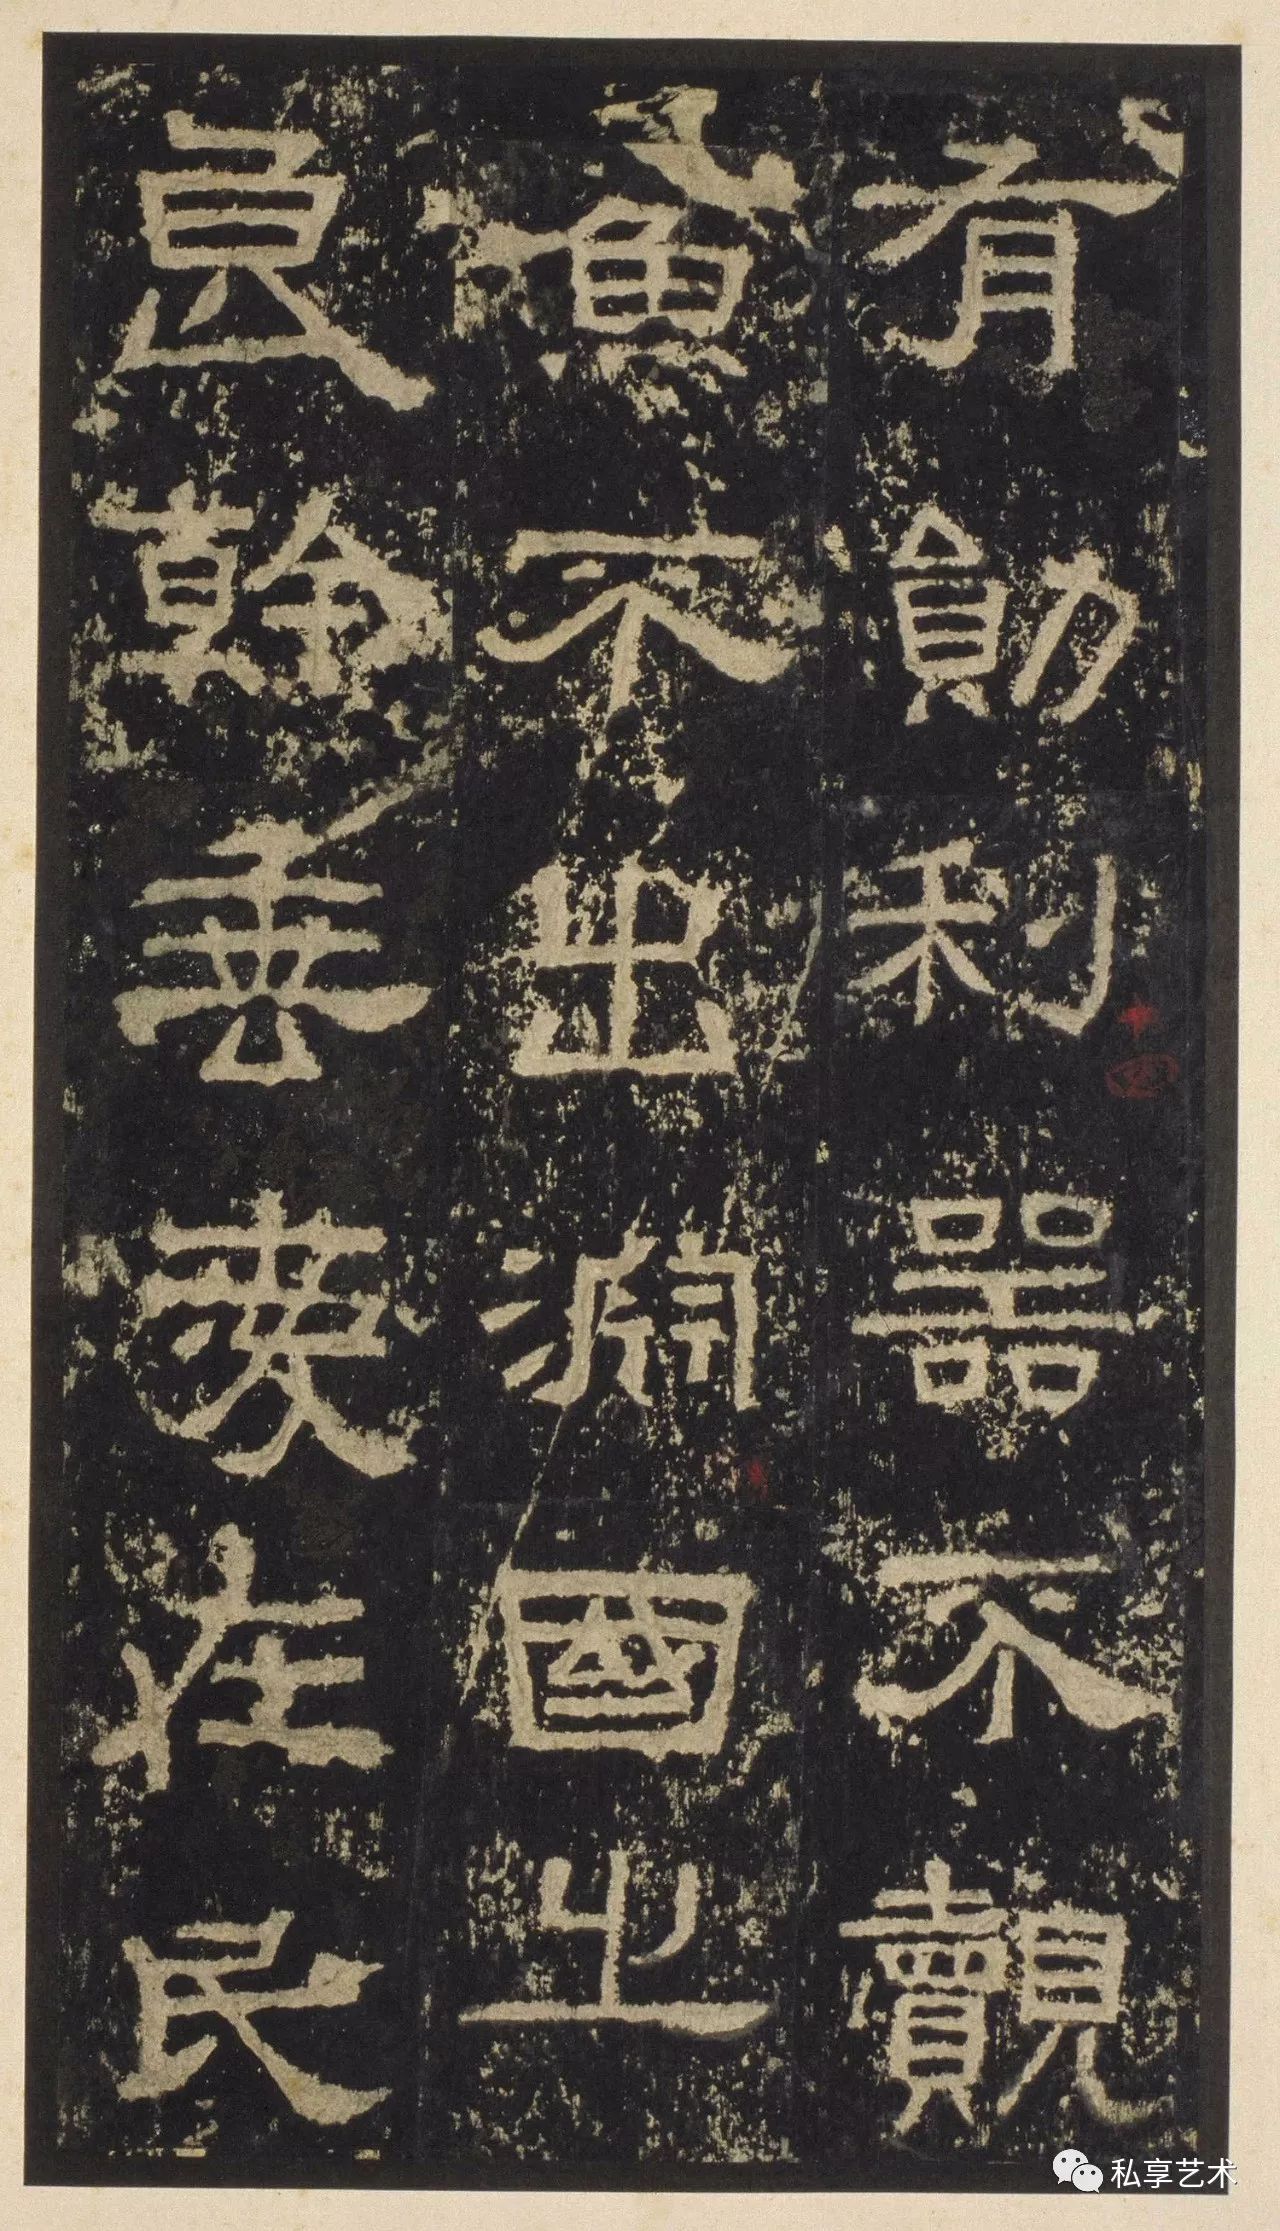 有勛利噐不覿
魚不出淵國之
良幹垂愛在民
私享艺术